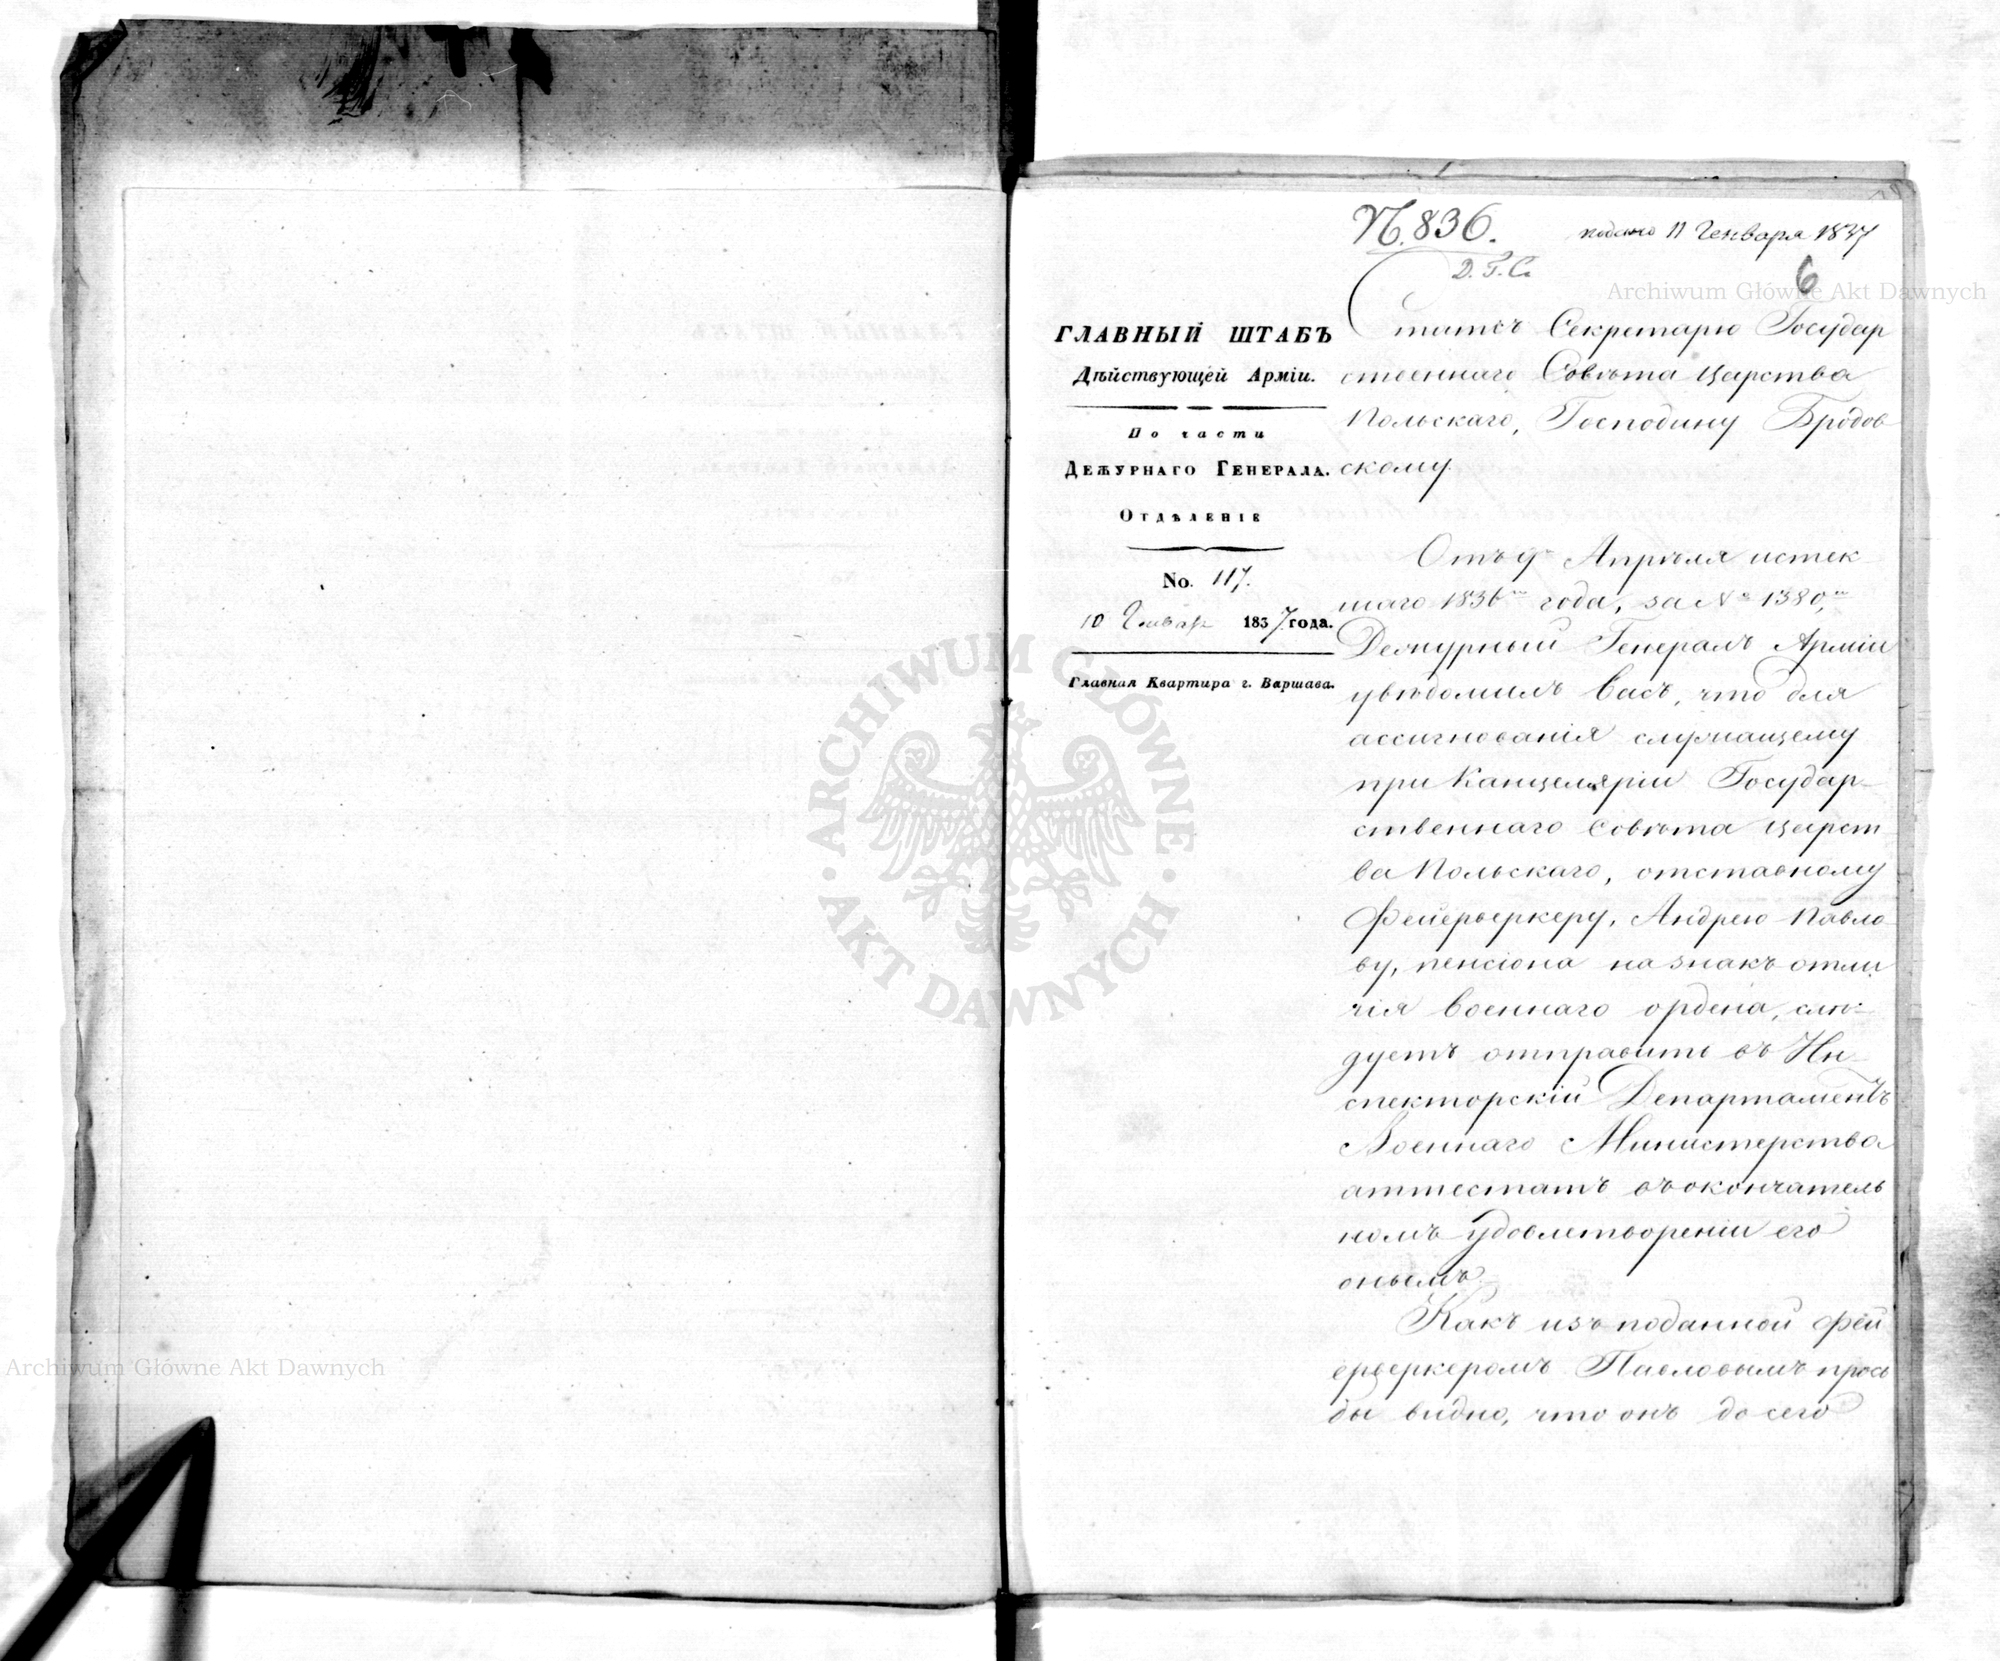 №. 836.
подано 11 Генваря 1837
Д. Г. С.
6
Archiwum Główne Akt Dawnych
ГЛАВНЫЙ ШТАБЪ
Дѣйствующей Арміи.
По части
ДЕЖУРНАГО ГЕНЕРАЛА.
ОТДѢЛЕНІЕ
No. 117.
10 Генваря 1837 года.
Главная Квартира г. Варшава.
Статсъ Секретарю Государ
ственнаго Совѣта Царства
Польскаго, Господину Бродов
скому.
Отъ 9го Апрѣля истек-
шаго 1836го года, за №
Дежурный Генералъ Арміи
увѣдомилъ Васъ, что для
ассигнованія служащему
при Канцеляріи Государ-
ственнаго Совѣта Царст-
ва Польскаго, отставному
Фейерверкеру, Андрею Павло-
ву, пенсіона на знакъ отли
чія военнаго ордена, слѣ-
дуетъ отправить въ Ин-
спекторскій Департаментъ
Военнаго Министерства
аттестатъ объ окончатель
номъ удовлетвореніи его
онымъ.
Какъ изъ поданной фей
ерверкеромъ Павловымъ прось
бы видно, что онъ до сего
ARCHIWUM GŁÓWNE
AKT DAWNYCH
Archiwum Główne Akt Dawnych